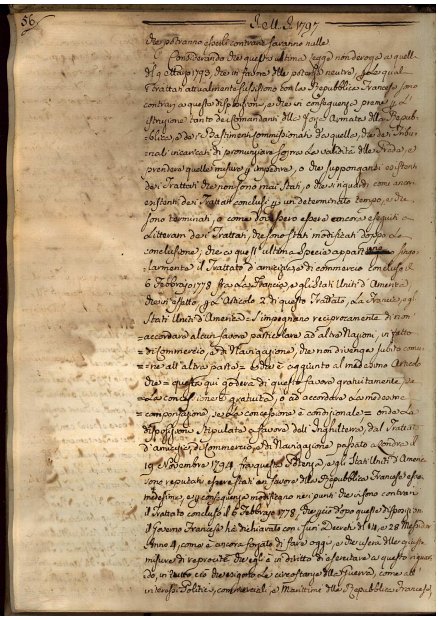 56
J. M. J. 1797
che potranno esserle contrarie saranno nulle
Considerando che quest'ultima legge non deroga a quell
che in favore delle potenze neutre, li quali
Trattati attualmente sussistono con la Repubblica Francese sono
contrarj a queste disposizioni, e che in conseguenza preme
struzione tanto dei Comandanti della Forza Armata della Repub-
blica, e dei Bastimenti commissionati da quella, che dei Tribu-
nali incaricati di pronunziare sopra la validità delle Prede, a
prendere quelle misure impedire, o che suppongansi esistenti
dei Trattati che non sono mai stati, o che si guardi come ancor
esistenti dei Trattati conclusi un determinato tempo, e che
sono terminati, o come dovessero essere ancora eseguiti a
Litteram dei Trattati, che sono stati modificati doppo la
conclusione; che a quest'ultima specie appartiene singo
larmente il Trattato d'amicizia, e di commercio concluso il
6 Febbrajo 1778 fra la Francia, e gli Stati Uniti d'America
che in effetto Articolo 2 di questo Trattato, la Francia, e gl
Stati Uniti d'America = s'impegnano reciprocamente di non
= accordare alcun favore particolare ad altre Nazioni, in fatto
= di Commercio, e di Navigazione, che non divenga subito comu-
= ne all'altra parte = e che è aggiunto al medesimo Articolo
che = questo qui goderà di questo favore gratuitamente, se
= la concessione è gratuita, o ad accordare la medesima
= compensazione, se la Concessione è condizionale = onde la
disposizioni stipulate a favore dell'Inghilterra, dal Trattat
d'amicizia, di Commercio, e di Navigazione passato a Londra il
19 Novembre 1794 fra questa Potenza, e gli Stati Uniti d'America
sono reputati essere stati in favore della Repubblica Francese es
medesime, e conseguenza modificano nei punti che vi sono contrarj
il Trattato concluso il 6 Febbrajo 1778, che doppo queste disposizion
il Governo Francese ha dichiarato con i suoi Decreti di 14, e 28 Messidor
Anno 4, come è ancora forzato di fare oggi, e che userà delle queste
misure di reprocità che egli è in diritto di esercitare a questo riguar
do, in tutto ciò che esigono le circostanze della Guerra, come all
interessi Politici, commerciali, e Marittimi della Repubblica Francese,